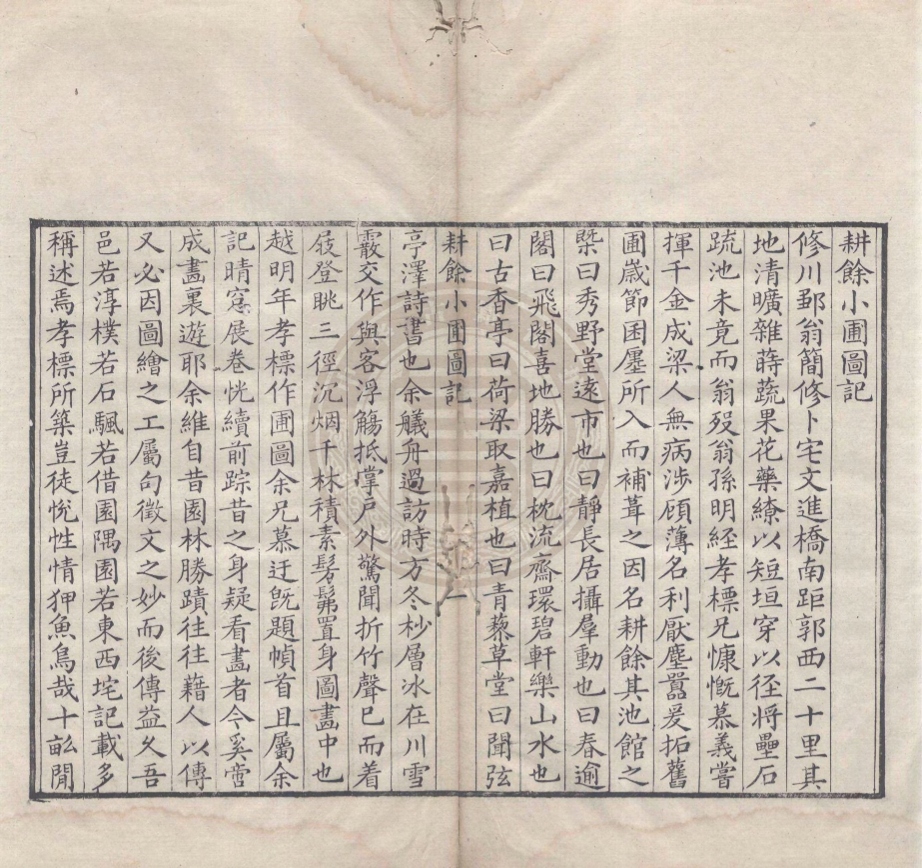 耕餘小圃圖記
修川鄞翁簡修卜宅文進橋南距郭西二十里其
地清曠雜蒔蔬果花藥繚以短垣穿以徑將壘石
疏池未竟而翁歿翁孫明經孝標兄慷慨慕義嘗
揮千金成梁人無病涉顧薄名利厭塵囂爰拓舊
圃歲節困廛所入而補葺之因名耕餘其池館之
槩曰秀野堂遠市也曰靜長居攝羣動也曰春逾
閣曰飛閣喜地勝也曰枕流齋環碧軒樂山水也
曰古香亭曰荷梁取嘉植也曰青藜草堂曰聞弦
耕餘小圃圖記 一
亭澤詩書也余艤舟過訪時方冬杪層冰在川雪
霰交作與客浮觴抵掌戶外驚聞折竹聲已而着
屐登眺三徑沉烟千林積素髣髴置身圖畫中也
越明年孝標作圃圖余兄慕迂旣題幀首且屬余
記晴窓展卷恍續前踪昔之身疑看畫者今奚啻
成畫裏遊耶余維自昔園林勝蹟往往藉人以傳
又必因圖繪之工屬句徵文之妙而後傳益久吾
邑若淳樸若石颿若借園隅園若東西垞記載多
稱述焉孝標所築豈徒恱性情狎魚鳥哉十畝閒